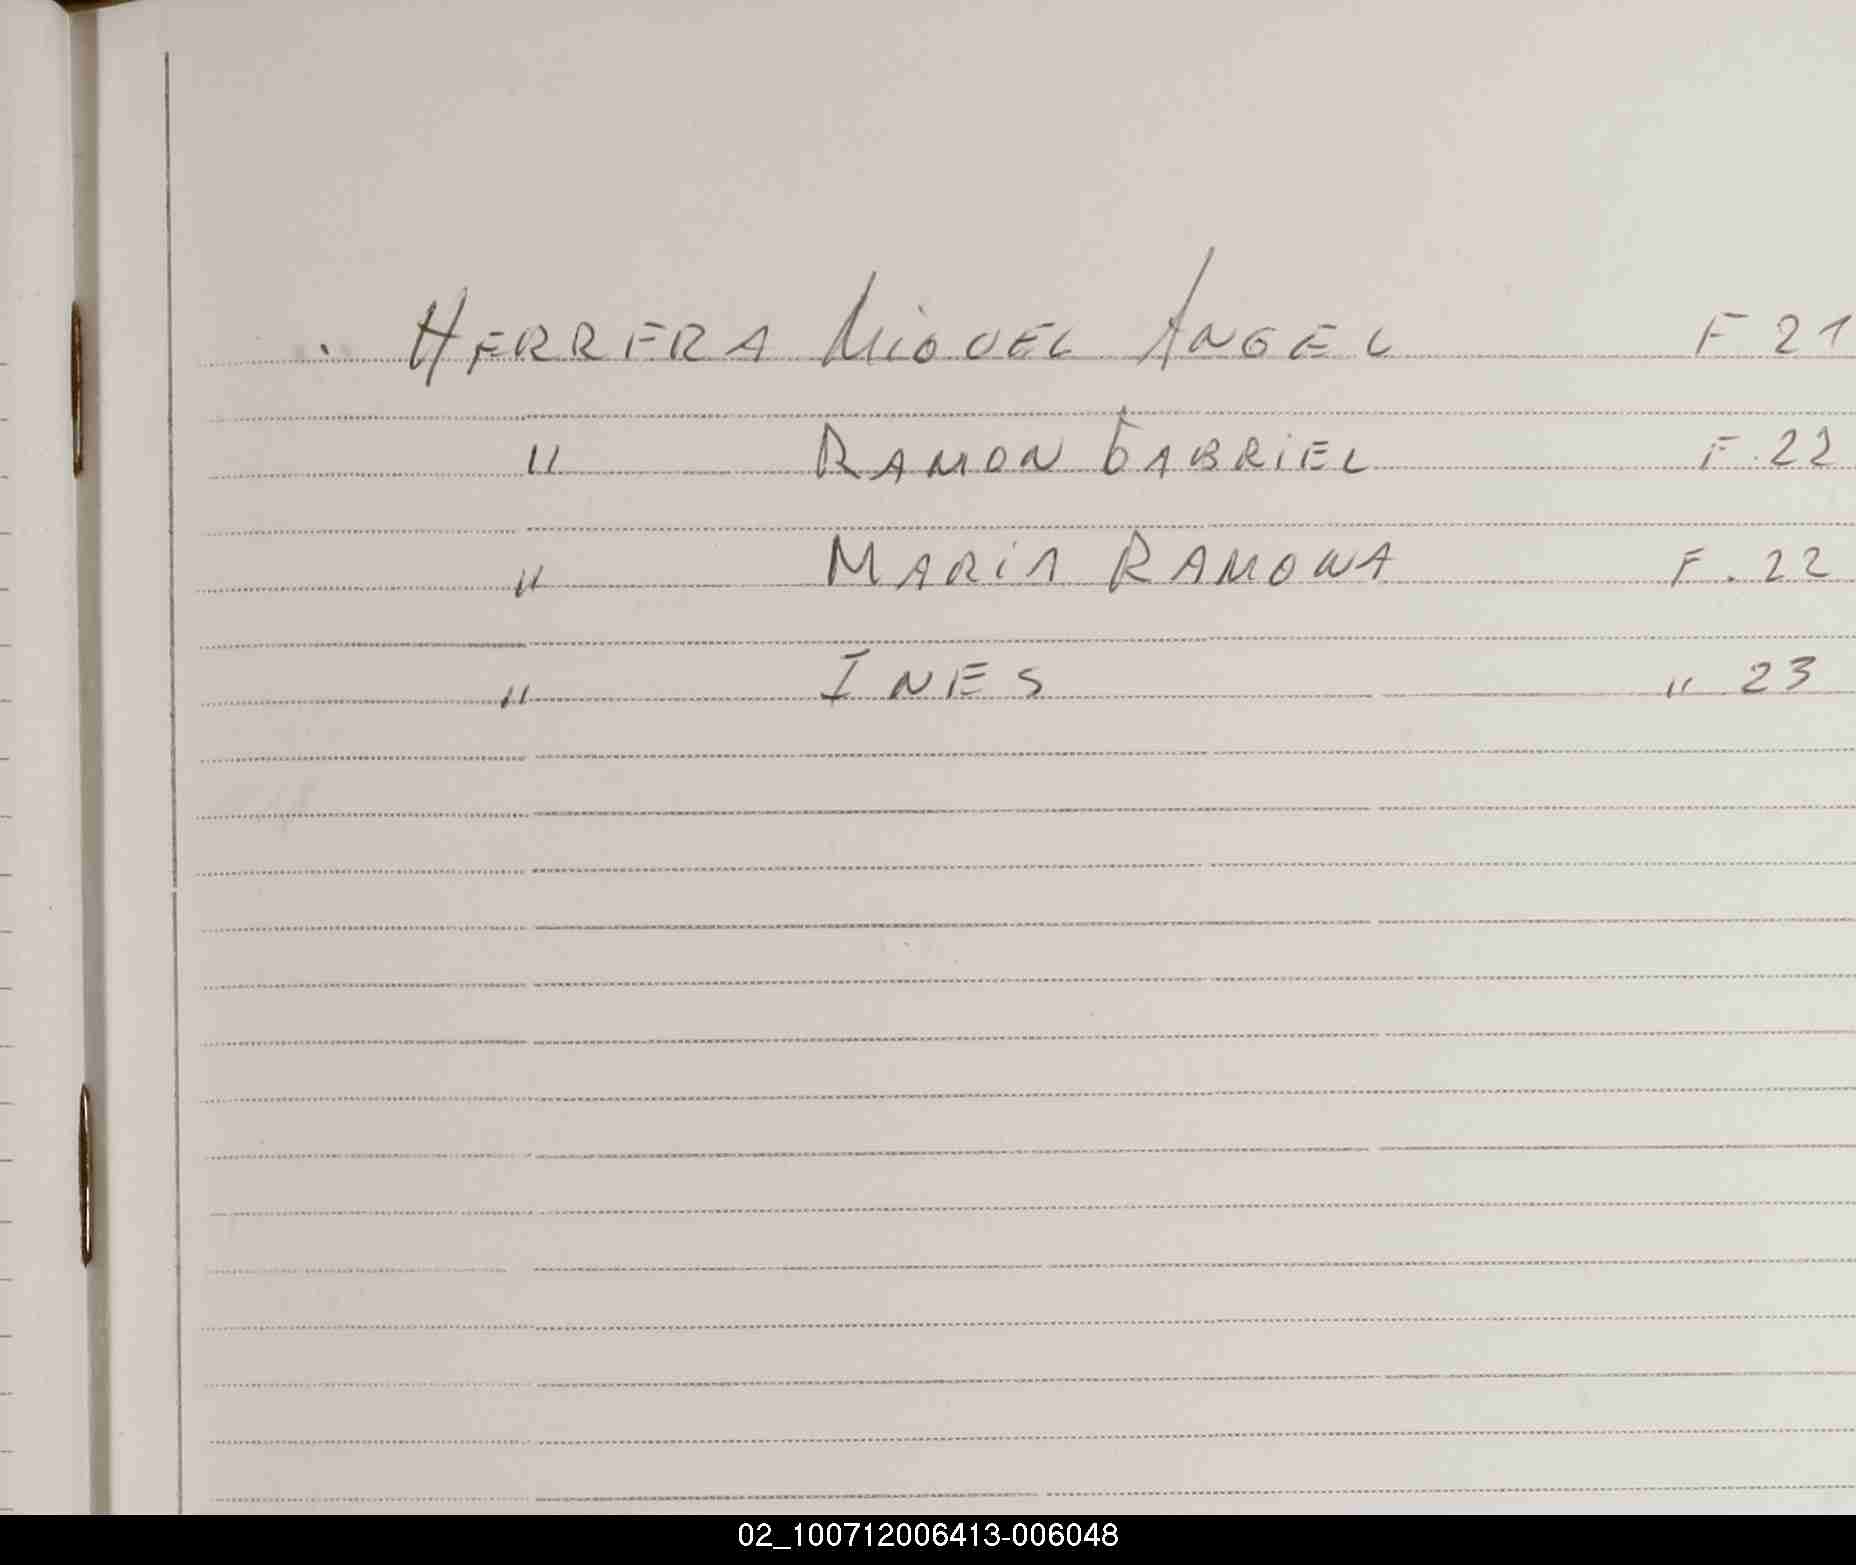 HERRERA MIGUEL ANGEL F 21
" RAMON GABRIEL F. 22
" MARIA RAMONA F. 22
" INES " 23
02_100712006413-006048